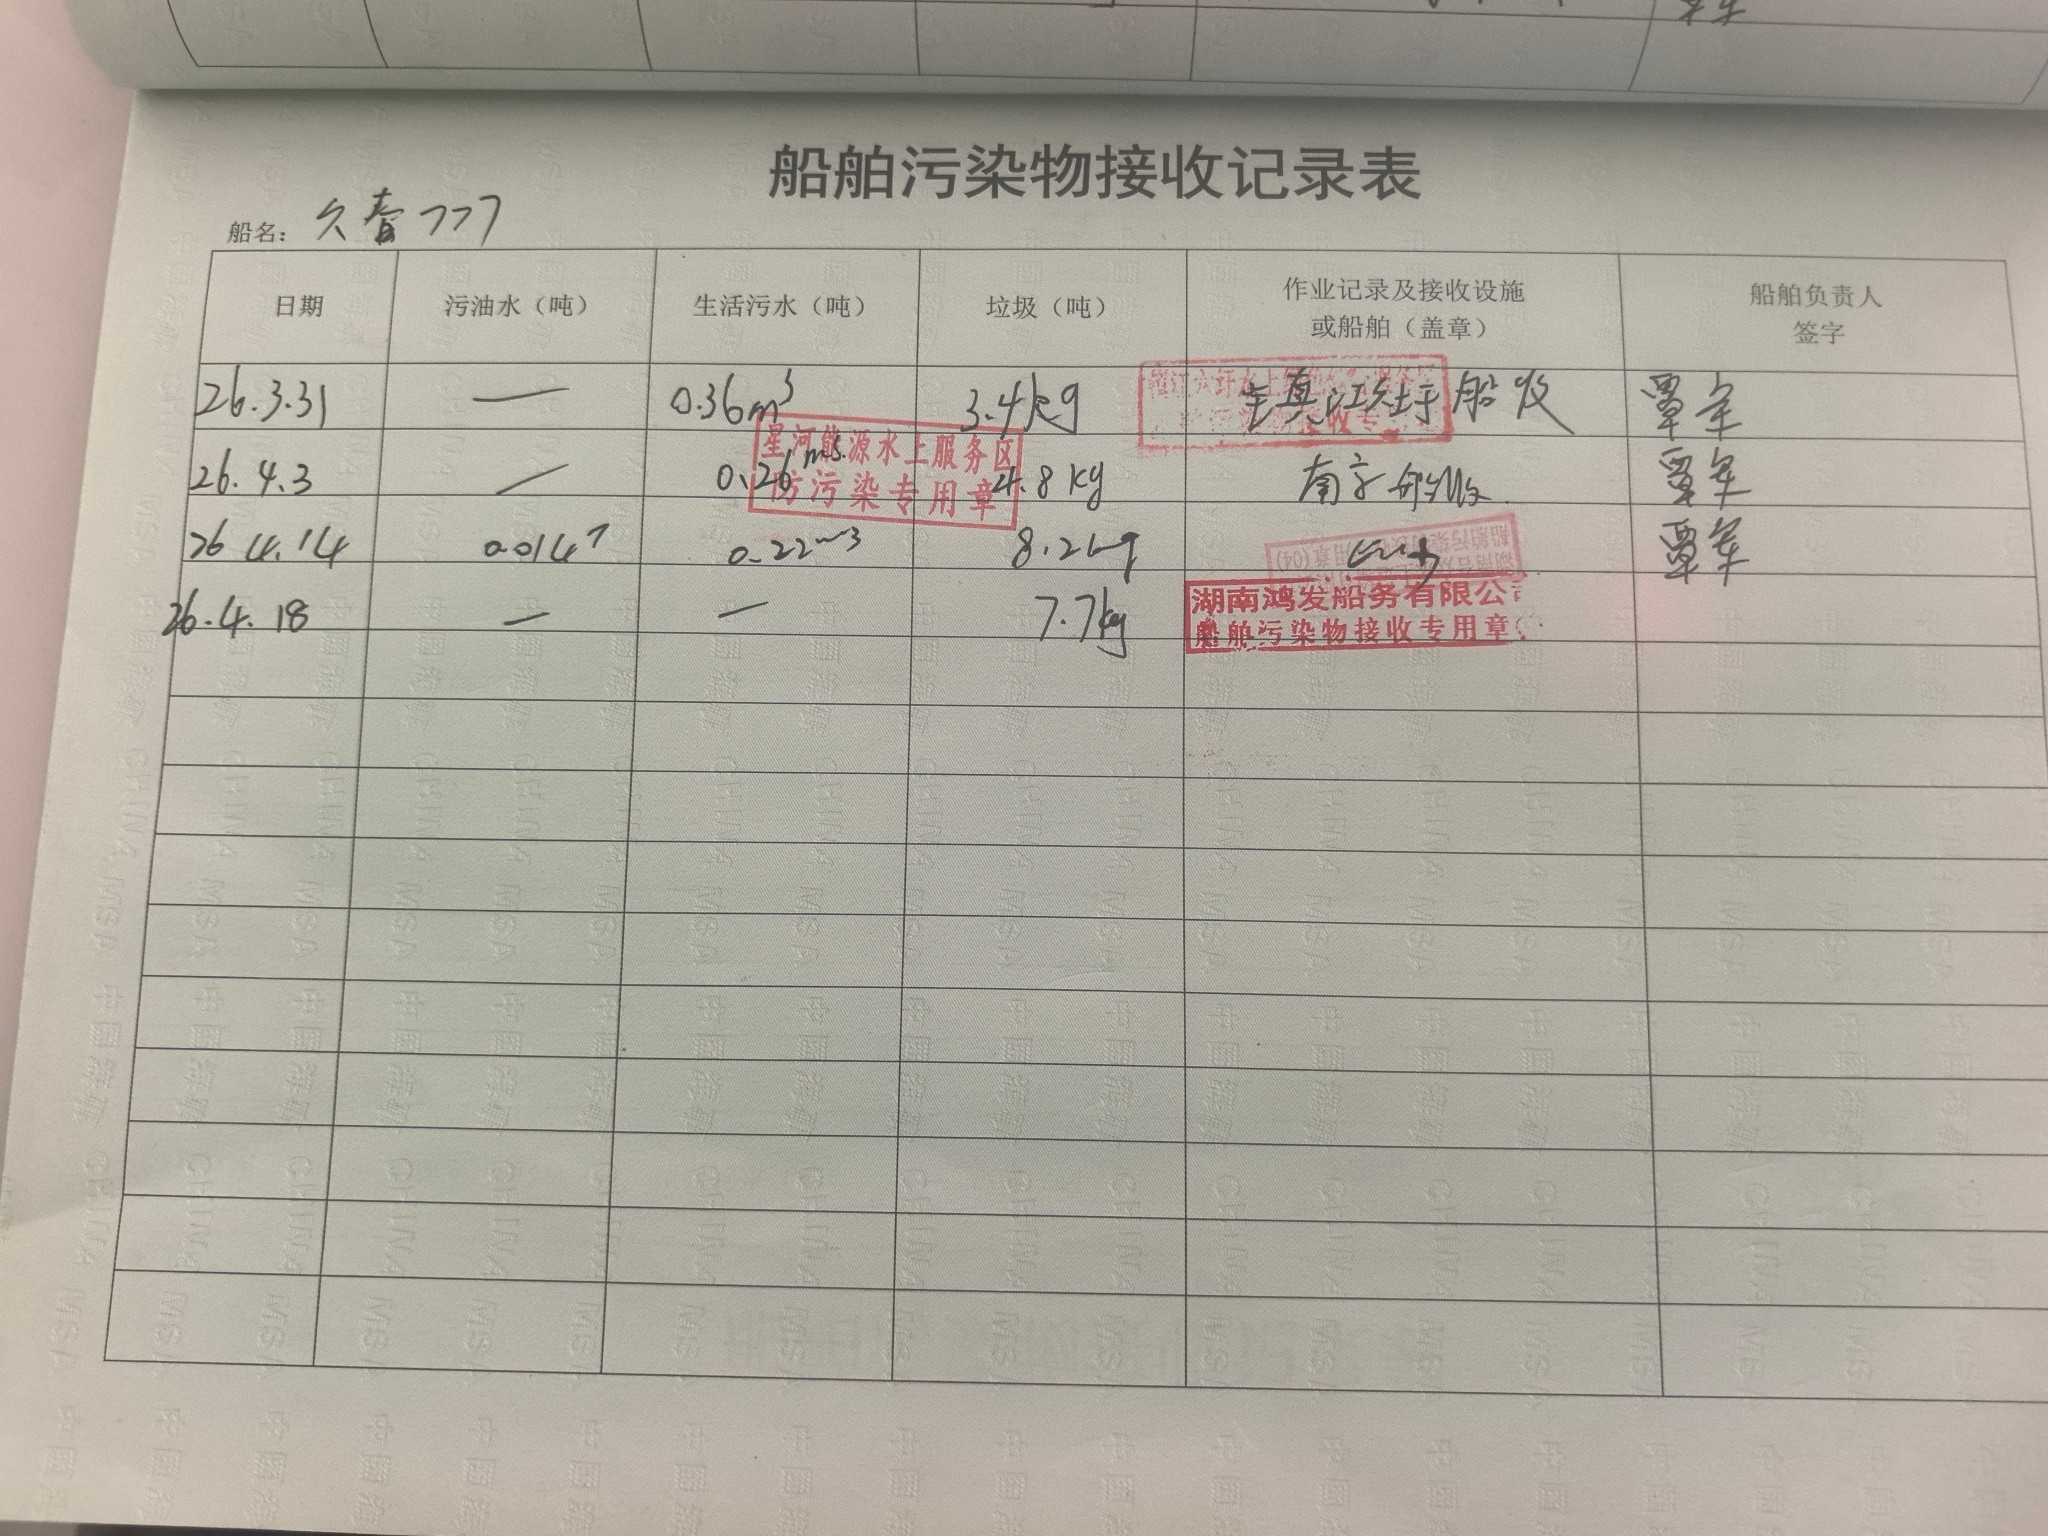 船舶污染物接收记录表
船名: 久春777
日期 污油水（吨） 生活污水（吨） 垃圾（吨） 作业记录及接收设施或船舶（盖章） 船舶负责人签字
26.3.31 — 0.36m³ 3.4kg 船收 覃军
26.4.3 — 0.26m³ 4.8kg 南京船收 覃军
星河能源水上服务区
防污染专用章
26 4.14 0.014T 0.22m3 8.2kg 覃军
26.4.18 — — 7.7kg
湖南鸿发船务有限公司
船舶污染物接收专用章